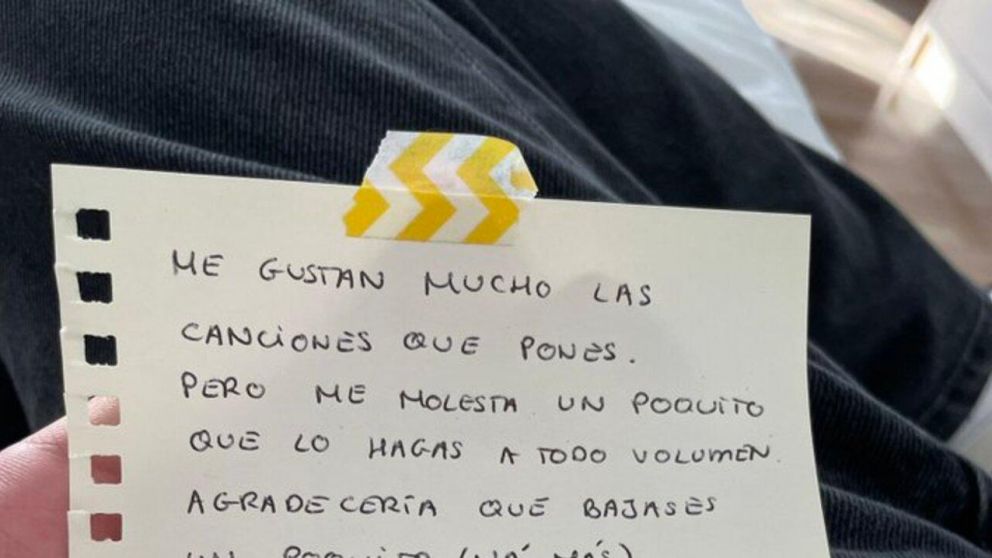 ME GUSTAN MUCHO LAS
CANCIONES QUE PONES.
PERO ME MOLESTA UN POQUITO
QUE LO HAGAS A TODO VOLUMEN.
AGRADECERÍA QUE BAJASES
UN POQUITO (NA' MÁS)